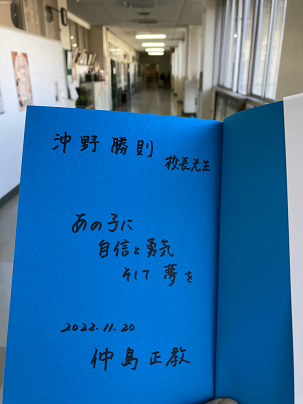 沖野勝則
校長先生
あの子に
自信と勇気
そして夢を
2022.11.20
仲島正教